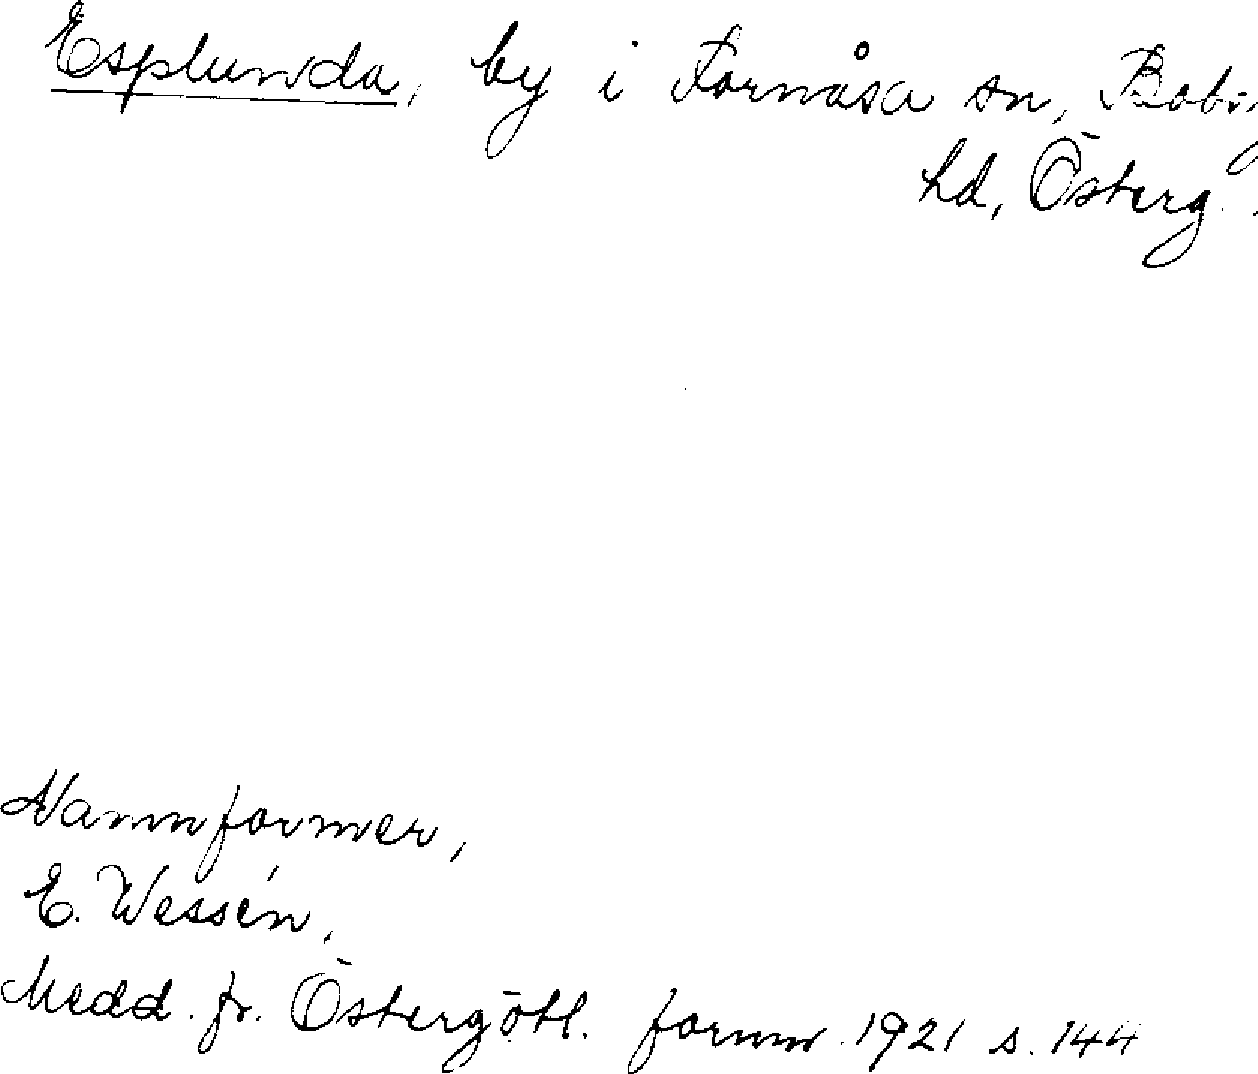 Esplunda, by i Fornåsa sn, Bobergs
hd, Österg.
Namnformer,
E. Wessén,
Medd. fr. Östergötl. fornm. 1921 s. 144